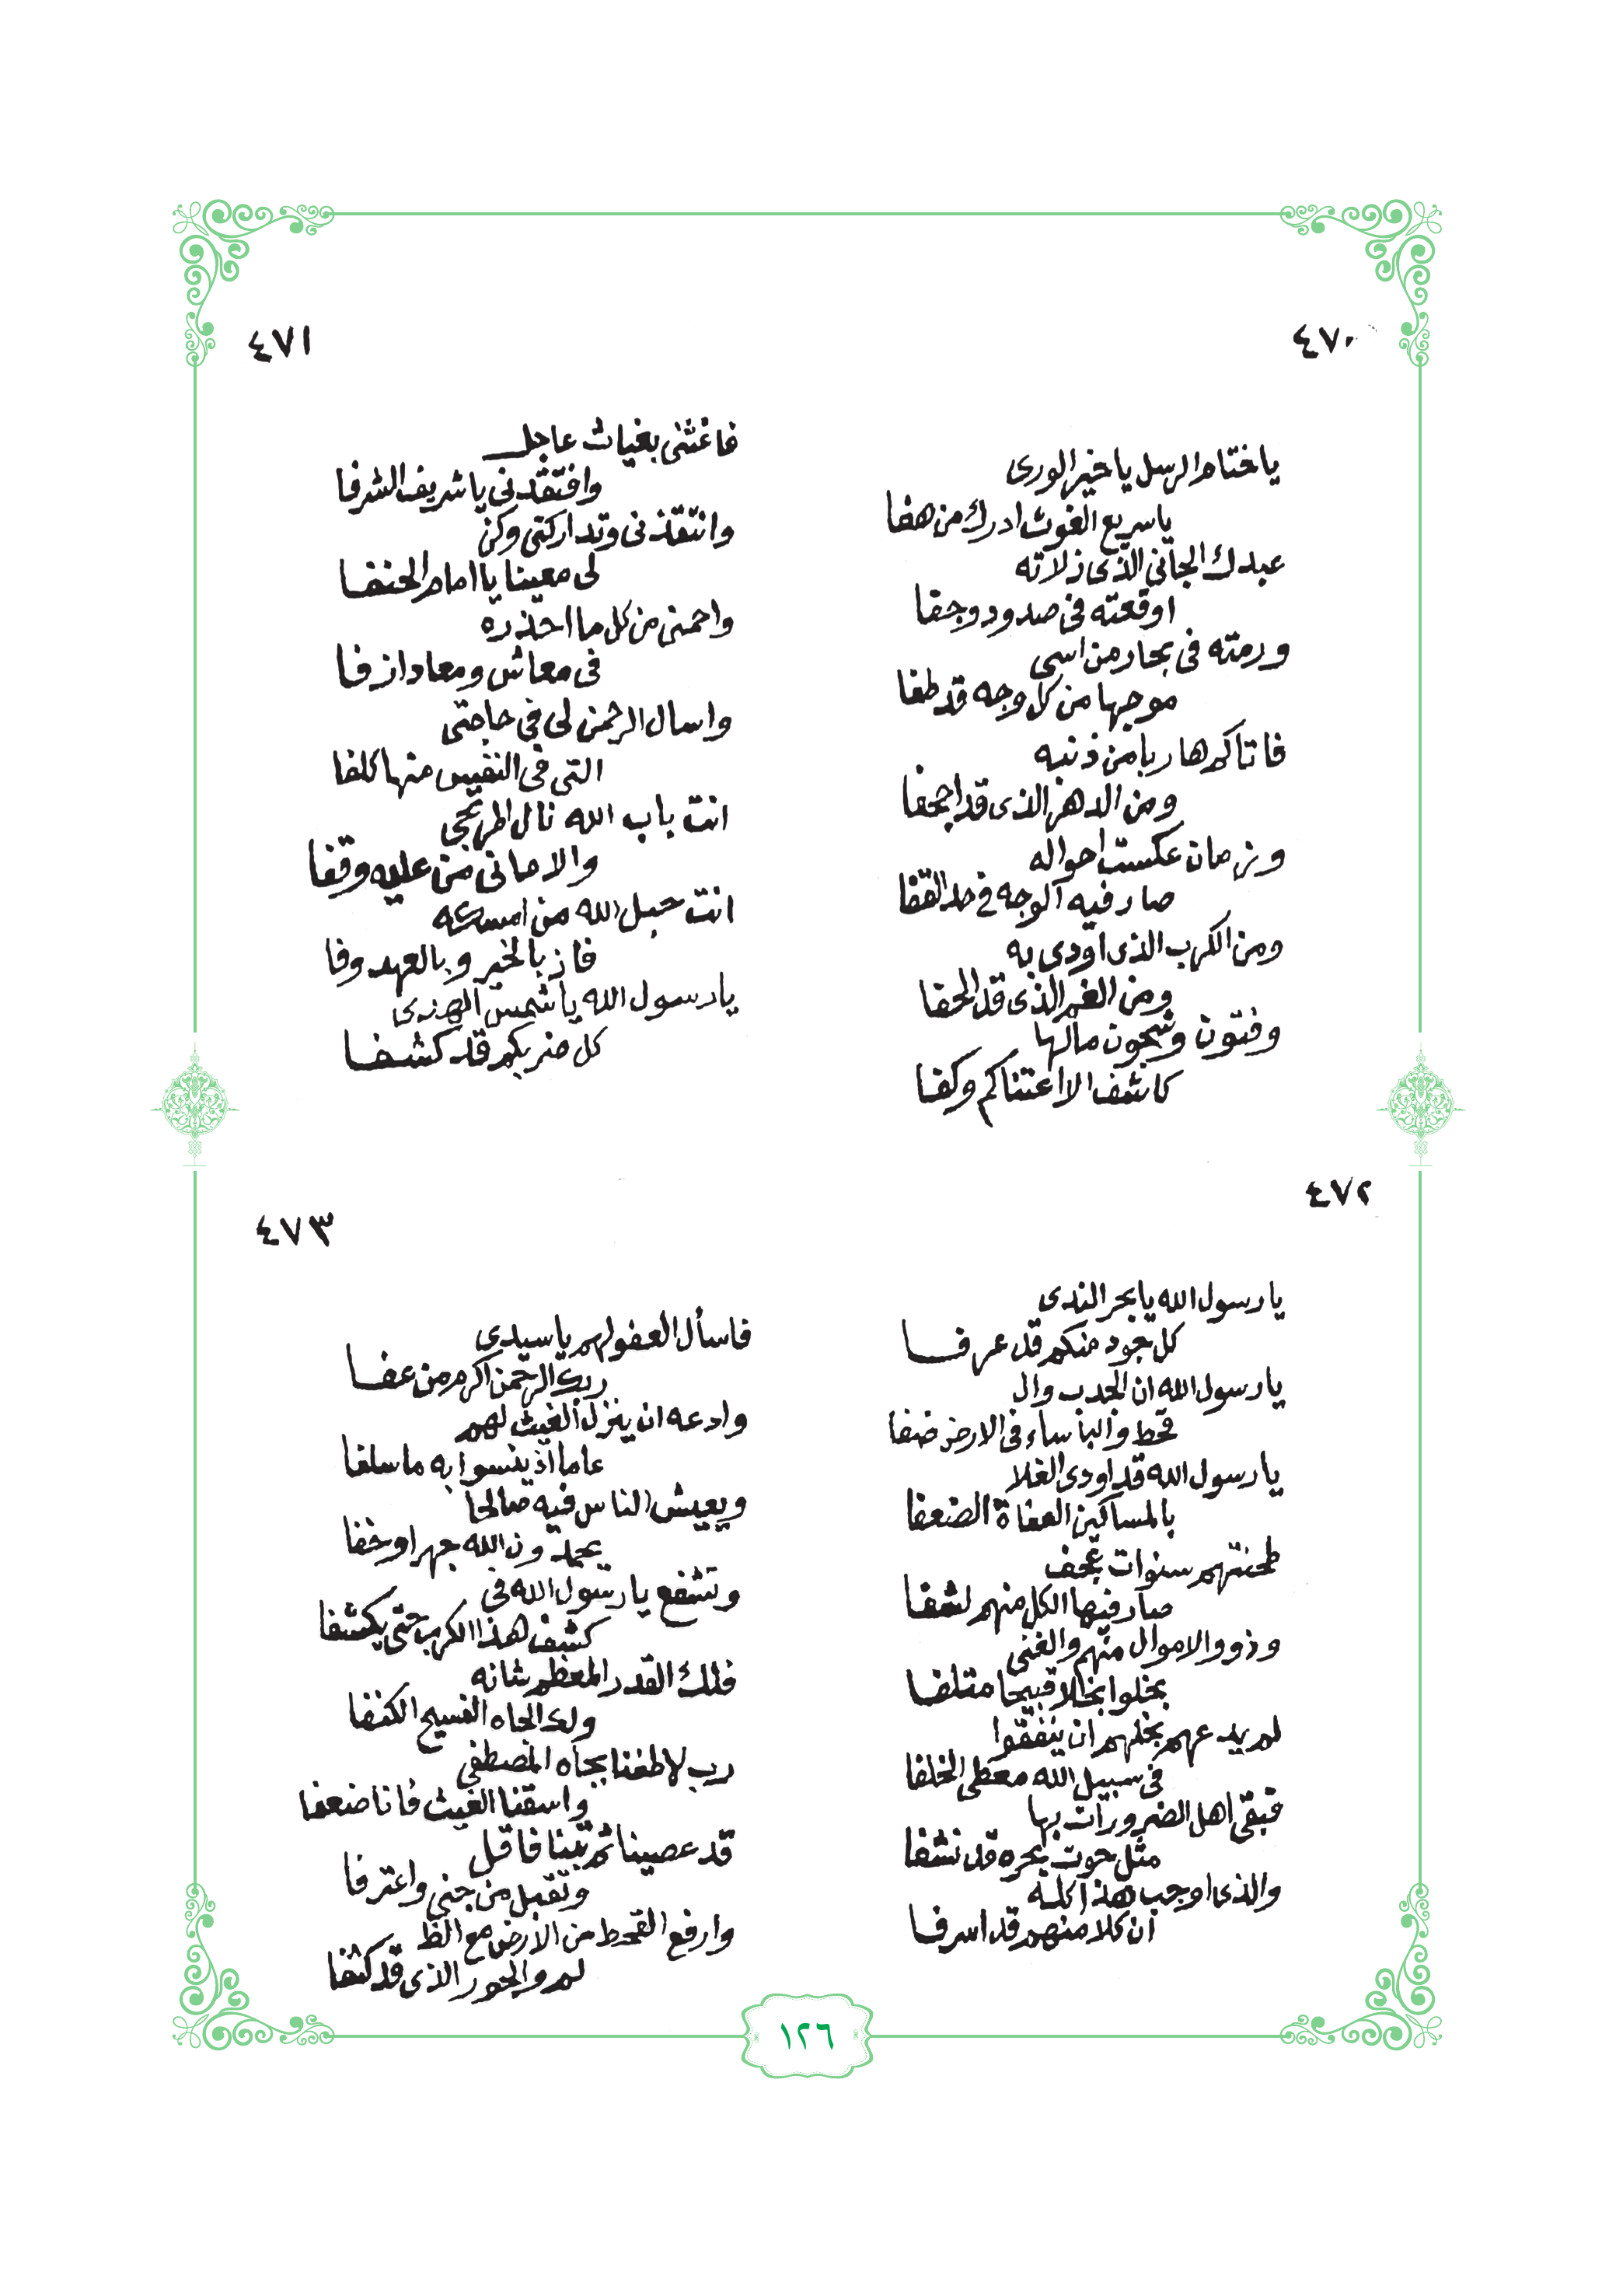 ٤٧٠
ياختام الرسل ياخير الورى
ياسريع الغوث ادرك من هفا
عبدك الجاني الذى زلاته
اوقعته فى صدود وجفا
ورمته فى بحار من اسى
موجها من كل وجه قد طفا
فاتاكم هاربا من ذنبه
ومن الدهر الذى قد اجحفا
وزمان عكست احواله
صار فيه الوجه فى حد القفا
ومن الكرب الذى اودى به
ومن الغم الذى قد الحفا
وفتون وشجون مالها
كاشف الا اعتناكم وكفا
٤٧١
فاغثنى بغياث عاجل
وافتقدنى ياشريف الشرفا
وانتقذنى وتداركنى وكن
لى معينا يا امام الحنفا
واحمنى من كل ما احذره
فى معاش ومعاد ازفا
واسال الرحمن لى فى حاجتى
التى فى النفس منها كلفا
انت باب الله نال المرتجى
والامانى من عليه وقفا
انت حبل الله من امسكه
فاز بالخير وبالعهد وفا
يارسول الله ياشمس الهدى
كل ضر بكم قد كشفا
٤٧٢
يارسول الله يابحر الندى
كل جود منكم قد عرفا
يارسول الله ان الجدب وال
قحط والبأساء فى الارض ضفا
يارسول الله قد اودى الغلا
بالمساكين العفاة الضعفا
طحنتهم سنوات عجف
صار فيها الكل منهم لشفا
وذوو الاموال منهم والغنى
بخلوا بخلا قبيحا متلفا
لم يدعهم بخلهم ان ينفقوا
فى سبيل الله معطى الخلفا
فبقى اهل الضرورات بها
مثل حوت بحره قد نشفا
والذى اوجب هذا كله
ان كلا منهم قد اسرفا
٤٧٣
فاسأل العفو لهم ياسيدى
ربك الرحمن اكرم من عفا
وادعه ان ينزل الغيث لهم
عاما اذ ينسوا به ماسلفا
ويعيش الناس فيه صالحا
يحمدون الله جهرا وخفا
وتشفع يارسول الله فى
كشف هذا الكرب حتى يكشفا
فلك القدر المعظم شانه
ولك الجاه الفسيح الكنفا
رب لاطفنا بجاه المصطفى
واسقنا الغيث فانا ضعفا
قد عصينا ثم تبنا فاقبل
وتقبل من جنى واعترفا
وارفع القحط من الارض مع الظ
لم والجور الذى قد كثفا
١٢٦